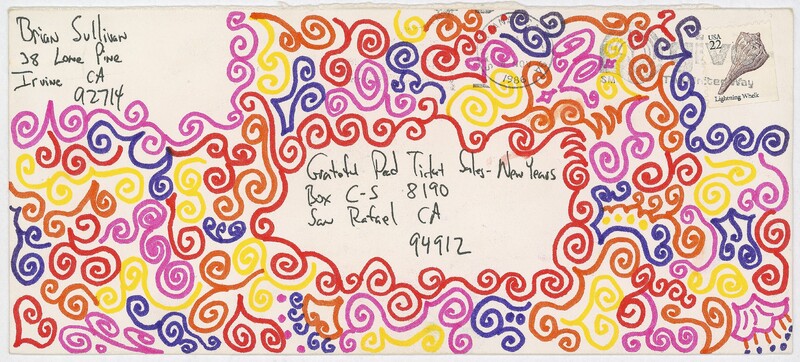 Brian Sullivan
38 Lone Pine
Irvine CA
92714
1986
USA
22
Lightning Whelk
Grateful Dead Ticket Sales - New Years
Box C-S 8190
San Rafael CA
94912